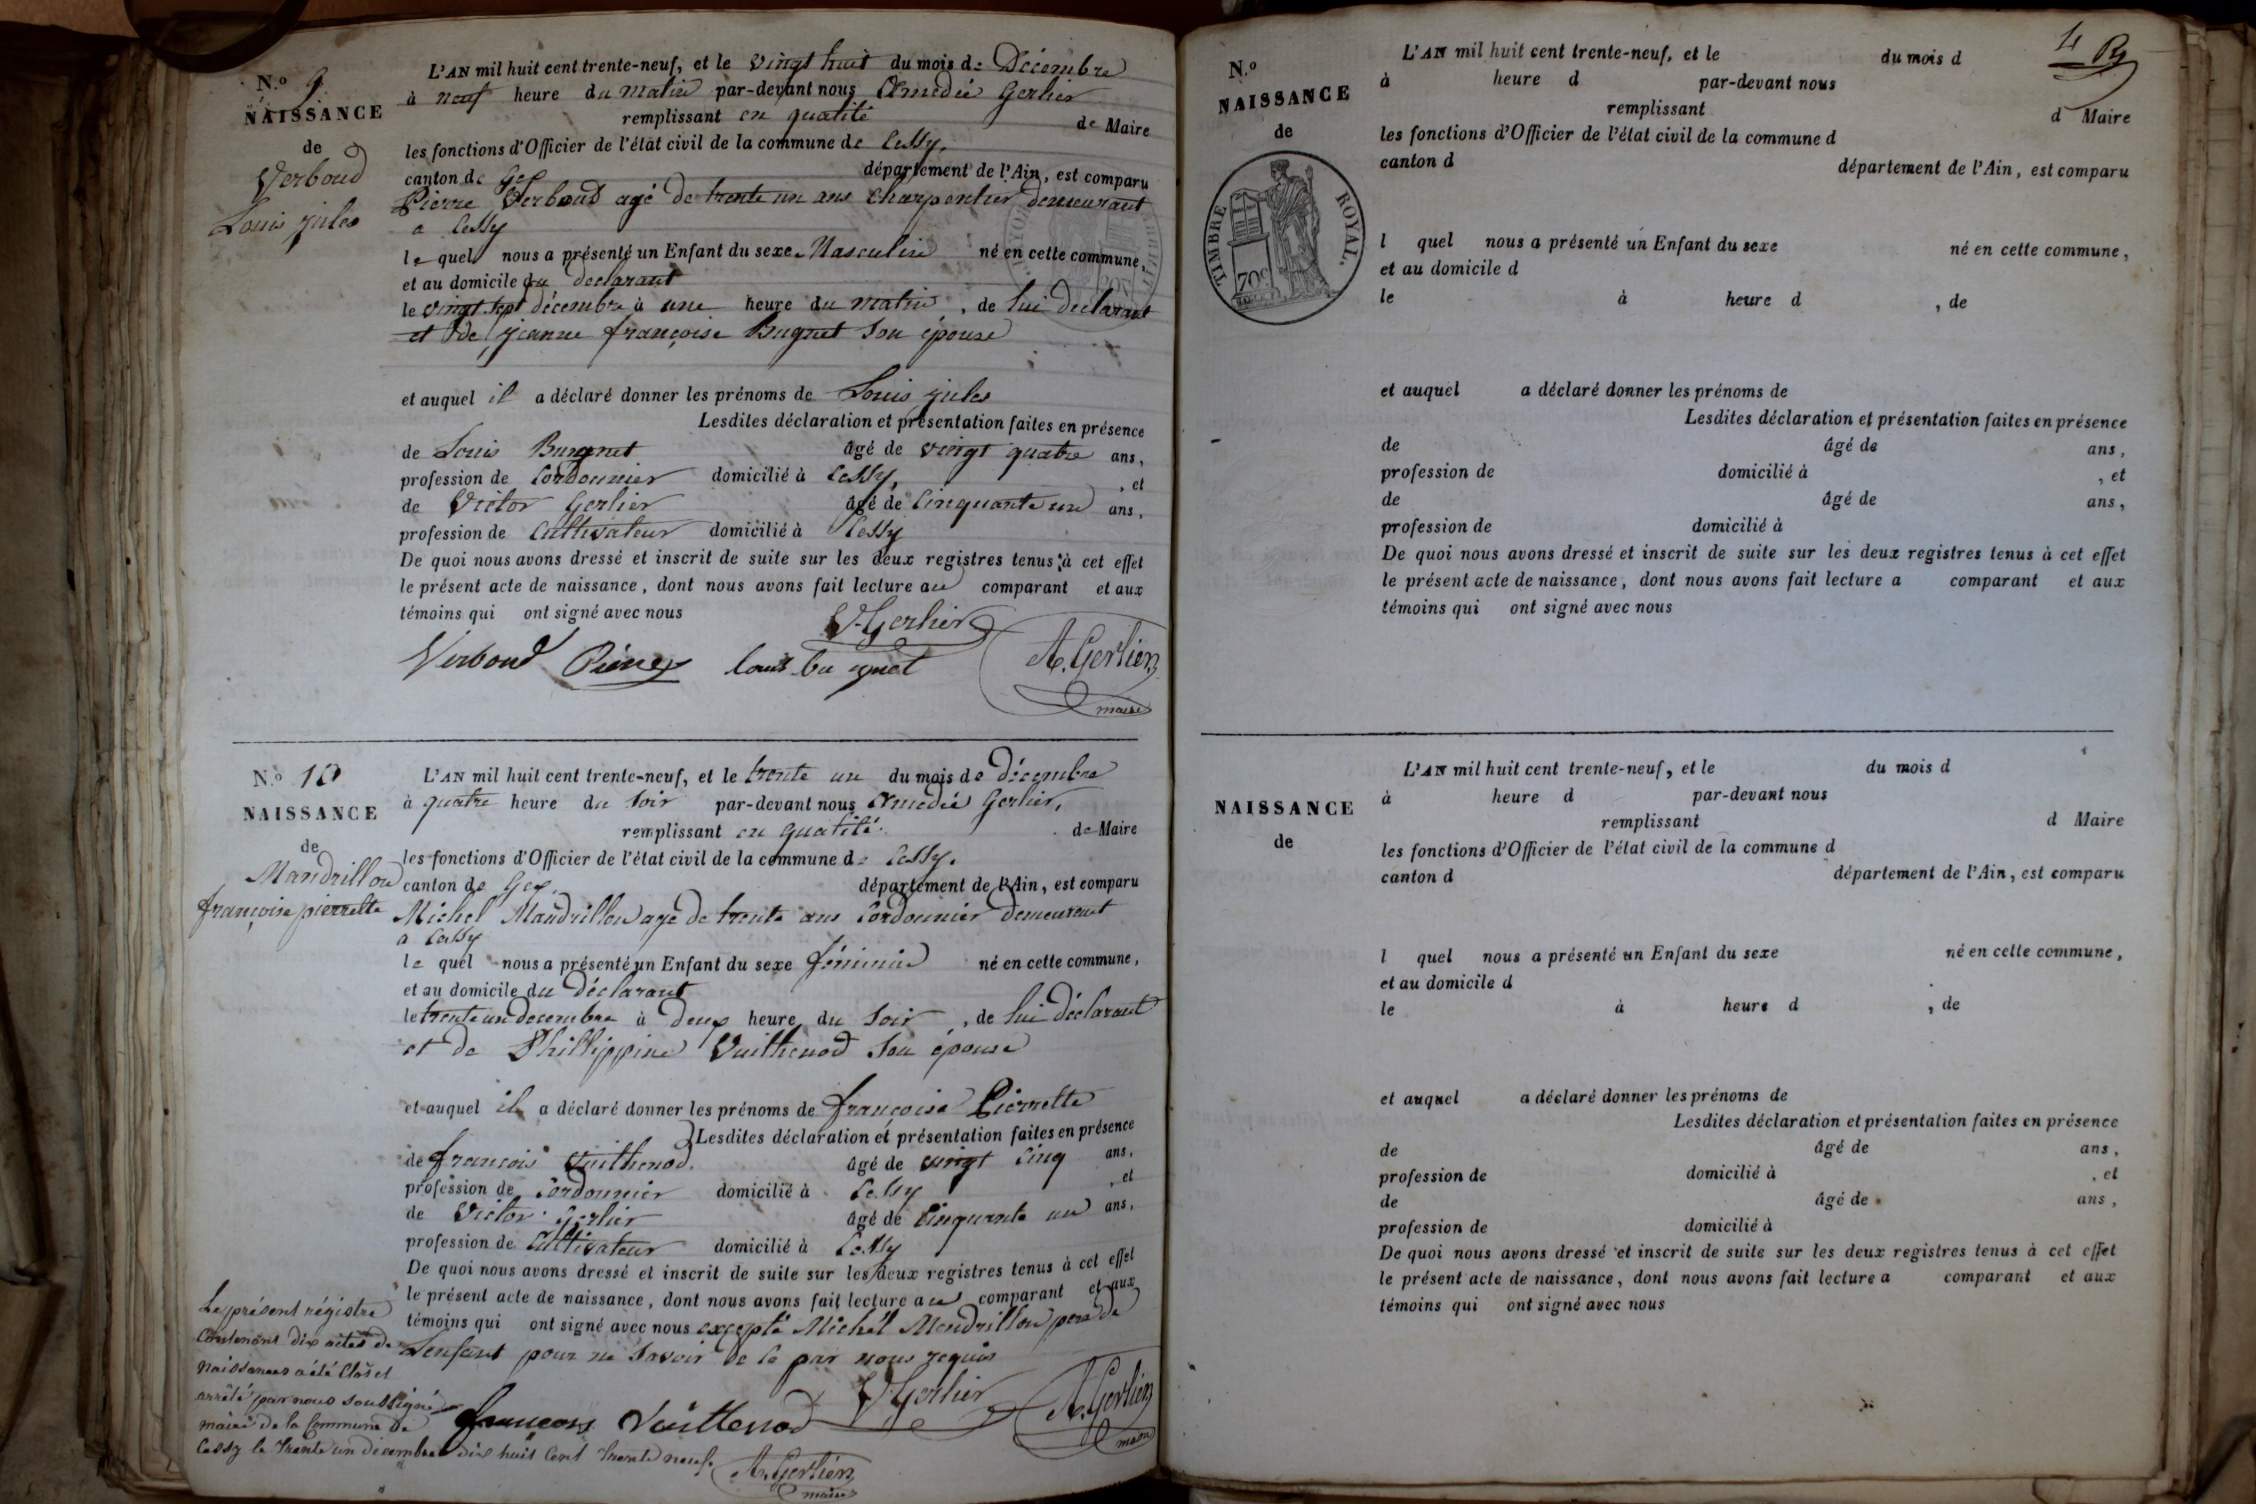 N.o 9
NAISSANCE
de
Verboud
Louis jules
L'AN mil huit cent trente-neuf, et le vingt huit du mois de Décembre
à neuf heure du matin par-devant nous Amedée Gerlier
remplissant en qualité de Maire
les fonctions d'Officier de l'état civil de la commune de Cessy,
canton de Gex département de l'Ain, est comparu
Pierre Verboud agé de trente un ans charpentier demeurant
a Cessy
le quel nous a présenté un Enfant du sexe Masculin né en cette commune,
et au domicile du declarant
le vingt sept décembre à une heure du matin, de lui declarant
et de jeanne françoise Bugnet son épouse
et auquel il a déclaré donner les prénoms de Louis jules
Lesdites déclaration et présentation faites en présence
de Louis Bugnet âgé de vingt quatre ans,
profession de Cordonnier domicilié à Cessy, , et
de Victor Gerlier âgé de Cinquante un ans,
profession de Cultivateur domicilié à Cessy
De quoi nous avons dressé et inscrit de suite sur les deux registres tenus à cet effet
le présent acte de naissance, dont nous avons fait lecture au comparant et aux
témoins qui ont signé avec nous
V. Gerlier
Verboud Pierre louis bugnet A. Gerlier
maire
N.o 10
NAISSANCE
de
Mandrillon
françoise pierrette
L'AN mil huit cent trente-neuf, et le trente un du mois de décembre
à quatre heure du soir par-devant nous Amedée Gerlier,
remplissant en qualité de Maire
les fonctions d'Officier de l'état civil de la commune de Cessy.
canton de Gex. département de l'Ain, est comparu
Michel Mandrillon agé de trente ans Cordonnier demeurant
a Cessy
le quel nous a présenté un Enfant du sexe féminin né en cette commune,
et au domicile du déclarant
le trente un decembre à deux heure du soir, de lui déclarant
et de Phillippine Vuithenod son épouse
et auquel il a déclaré donner les prénoms de françoise Pierrette
Lesdites déclaration et présentation faites en présence
de françois Vuithenod. âgé de vingt cinq ans,
profession de Cordonnier domicilié à Cessy , et
de Victor Gerlier âgé de Cinquante un ans,
profession de Cultivateur domicilié à Cessy
De quoi nous avons dressé et inscrit de suite sur les deux registres tenus à cet effet
le présent acte de naissance, dont nous avons fait lecture au comparant et aux
témoins qui ont signé avec nous excepté Michel Mendrillon pere de
L'enfant pour ne savoir de ce par nous requis
V. Gerlier A. Gerlier
françois Vuithenod maire
Le présent régistre
Contenant dix actes de
Naissances a été Clos et
arrêté par nous soussigné
maire de la Commune de
Cessy le trente un décembre dix huit Cent trente neuf.
A. Gerlier
maire
4
N.o
NAISSANCE
de
TIMBRE ROYAL.
70c
L'AN mil huit cent trente-neuf, et le du mois d
à heure d par-devant nous
remplissant d Maire
les fonctions d'Officier de l'état civil de la commune d
canton d département de l'Ain, est comparu
l quel nous a présenté un Enfant du sexe né en cette commune,
et au domicile d
le à heure d , de
et auquel a déclaré donner les prénoms de
Lesdites déclaration et présentation faites en présence
de âgé de ans,
profession de domicilié à , et
de âgé de ans,
profession de domicilié à
De quoi nous avons dressé et inscrit de suite sur les deux registres tenus à cet effet
le présent acte de naissance, dont nous avons fait lecture a comparant et aux
témoins qui ont signé avec nous
NAISSANCE
de
L'AN mil huit cent trente-neuf, et le du mois d
à heure d par-devant nous
remplissant d Maire
les fonctions d'Officier de l'état civil de la commune d
canton d département de l'Ain, est comparu
l quel nous a présenté un Enfant du sexe né en cette commune,
et au domicile d
le à heure d , de
et auquel a déclaré donner les prénoms de
Lesdites déclaration et présentation faites en présence
de âgé de ans,
profession de domicilié à , et
de âgé de ans,
profession de domicilié à
De quoi nous avons dressé et inscrit de suite sur les deux registres tenus à cet effet
le présent acte de naissance, dont nous avons fait lecture a comparant et aux
témoins qui ont signé avec nous